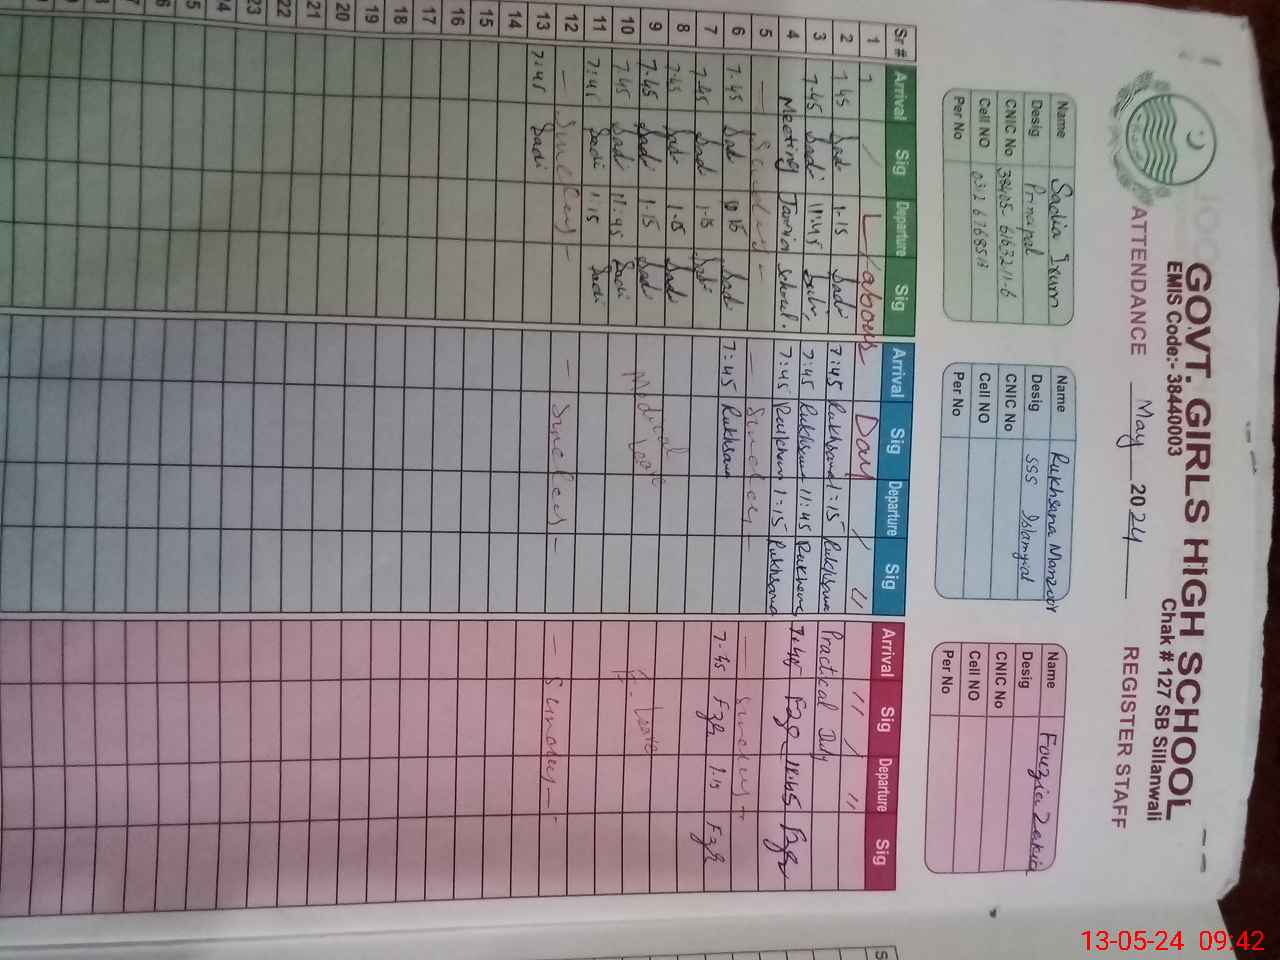 GOVT. GIRLS HIGH SCHOOL
EMIS Code:- 38440003 Chak # 127 SB Sillanwali
ATTENDANCE May 2024 REGISTER STAFF
Name Sadia Irum
Desig Principal
CNIC No
Cell NO
Per No
Name Rukhsana Manzoor
Desig SSS Islamyiat
CNIC No
Cell NO
Per No
Name Fouzia Zakia
Desig
CNIC No
Cell NO
Per No
Sr # Arrival Sig Departure Sig Arrival Sig Departure Sig Arrival Sig Departure Sig
1 Labour Day " "
2 7.45 Sadi 1-15 Sadi 7:45 Rukhsana 1=15 Rukhsana Practical Duty
3 7.45 Sadi 11:45 7:45 Rukhsana 11:45 Rukhsana 7.45 Fzr 11.45 Fzr
4 Meeting school. 7:45 Rukhsana 1:15 Rukhsana
5 — Sunday — — Sunday — — Sunday —
6 7.45 Sadi Sadi 7:45 Rukhsana 7.45 Fzr 1.15 Fzr
7 7.45 Sadi 1-15 Sadi
8 7.45 Sadi 1-15 Sadi
9 7.45 Sadi 1-15 Sadi Medical Leave Leave
10 7.45 Sadi 11:45 Sadi
11 7:45 Sadi 1:15 Sadi
12 — Sunday — — Sunday — — Sunday —
13 7:45 Sadi
14
15
16
17
18
19
20
21
22
23
13-05-24 09:42